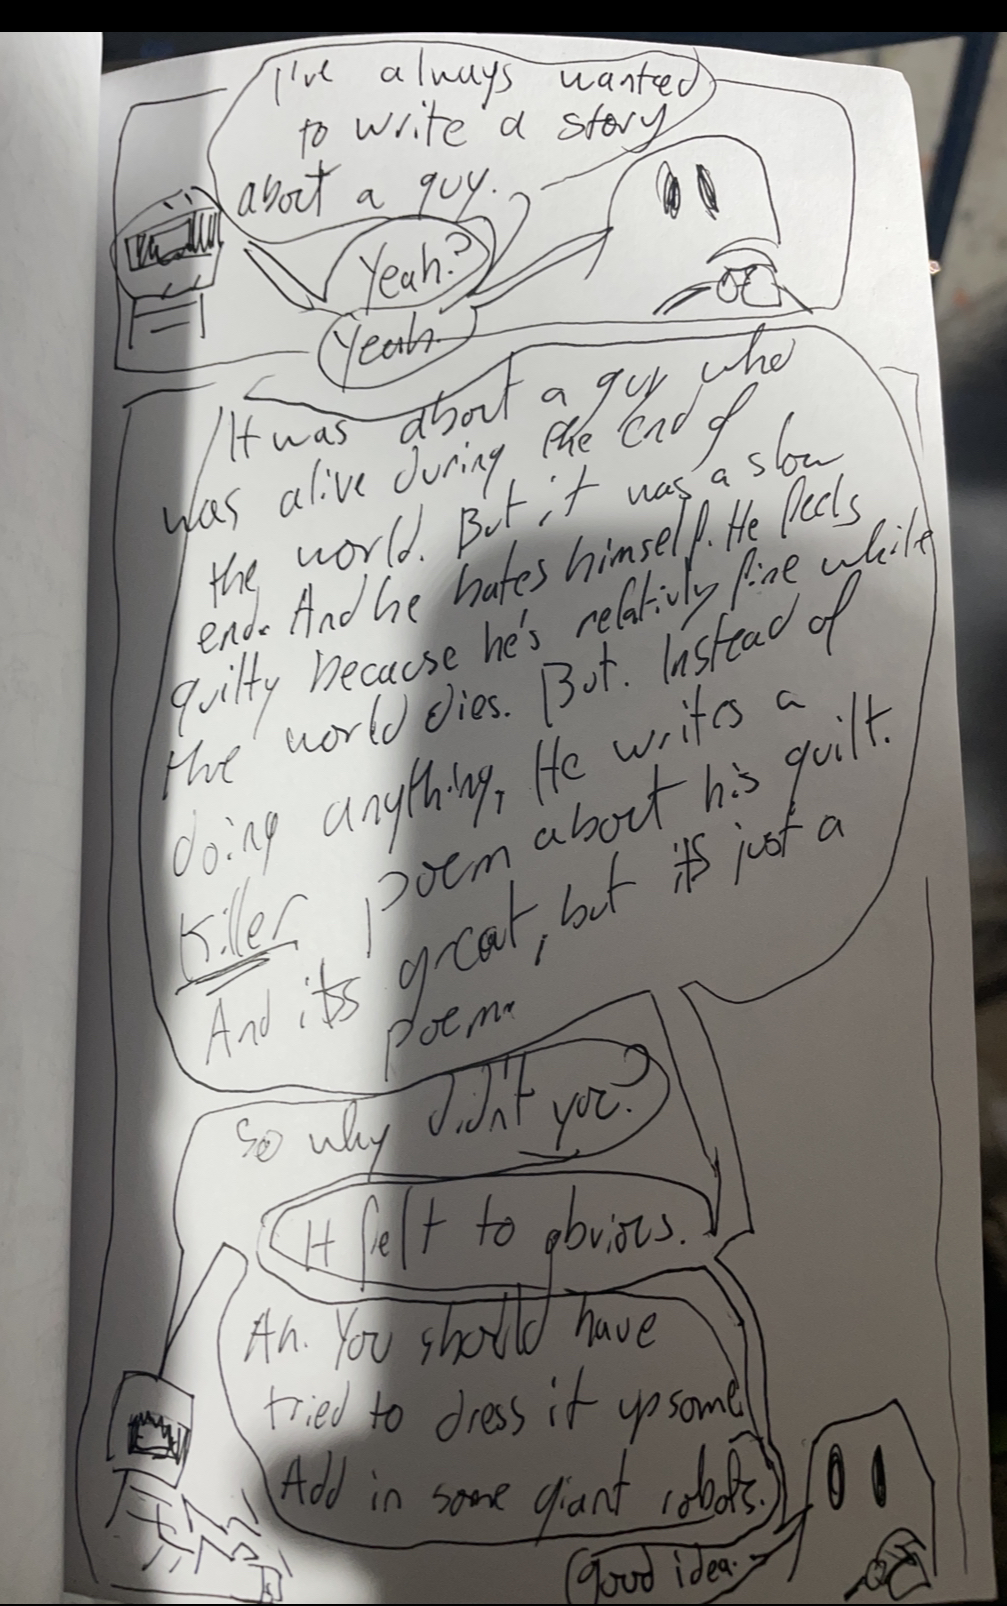 I've always wanted
to write a story
about a guy.
Yeah?
Yeah.
It was about a guy who
was alive during the end of
the world. But it was a slow
end. And he hates himself. He feels
guilty because he's relativly fine while
the world dies. But. Instead of
doing anything, He writes a
Killer poem about his guilt.
And its great, but its just a
poem.
So why didn't you?
It felt to obvious.
Ah. You should have
tried to dress it up some.
Add in some giant robots.
Good idea.